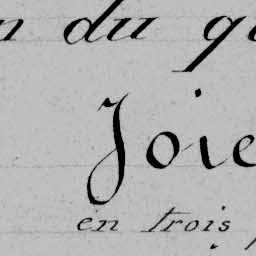 n du q
Joie
en trois